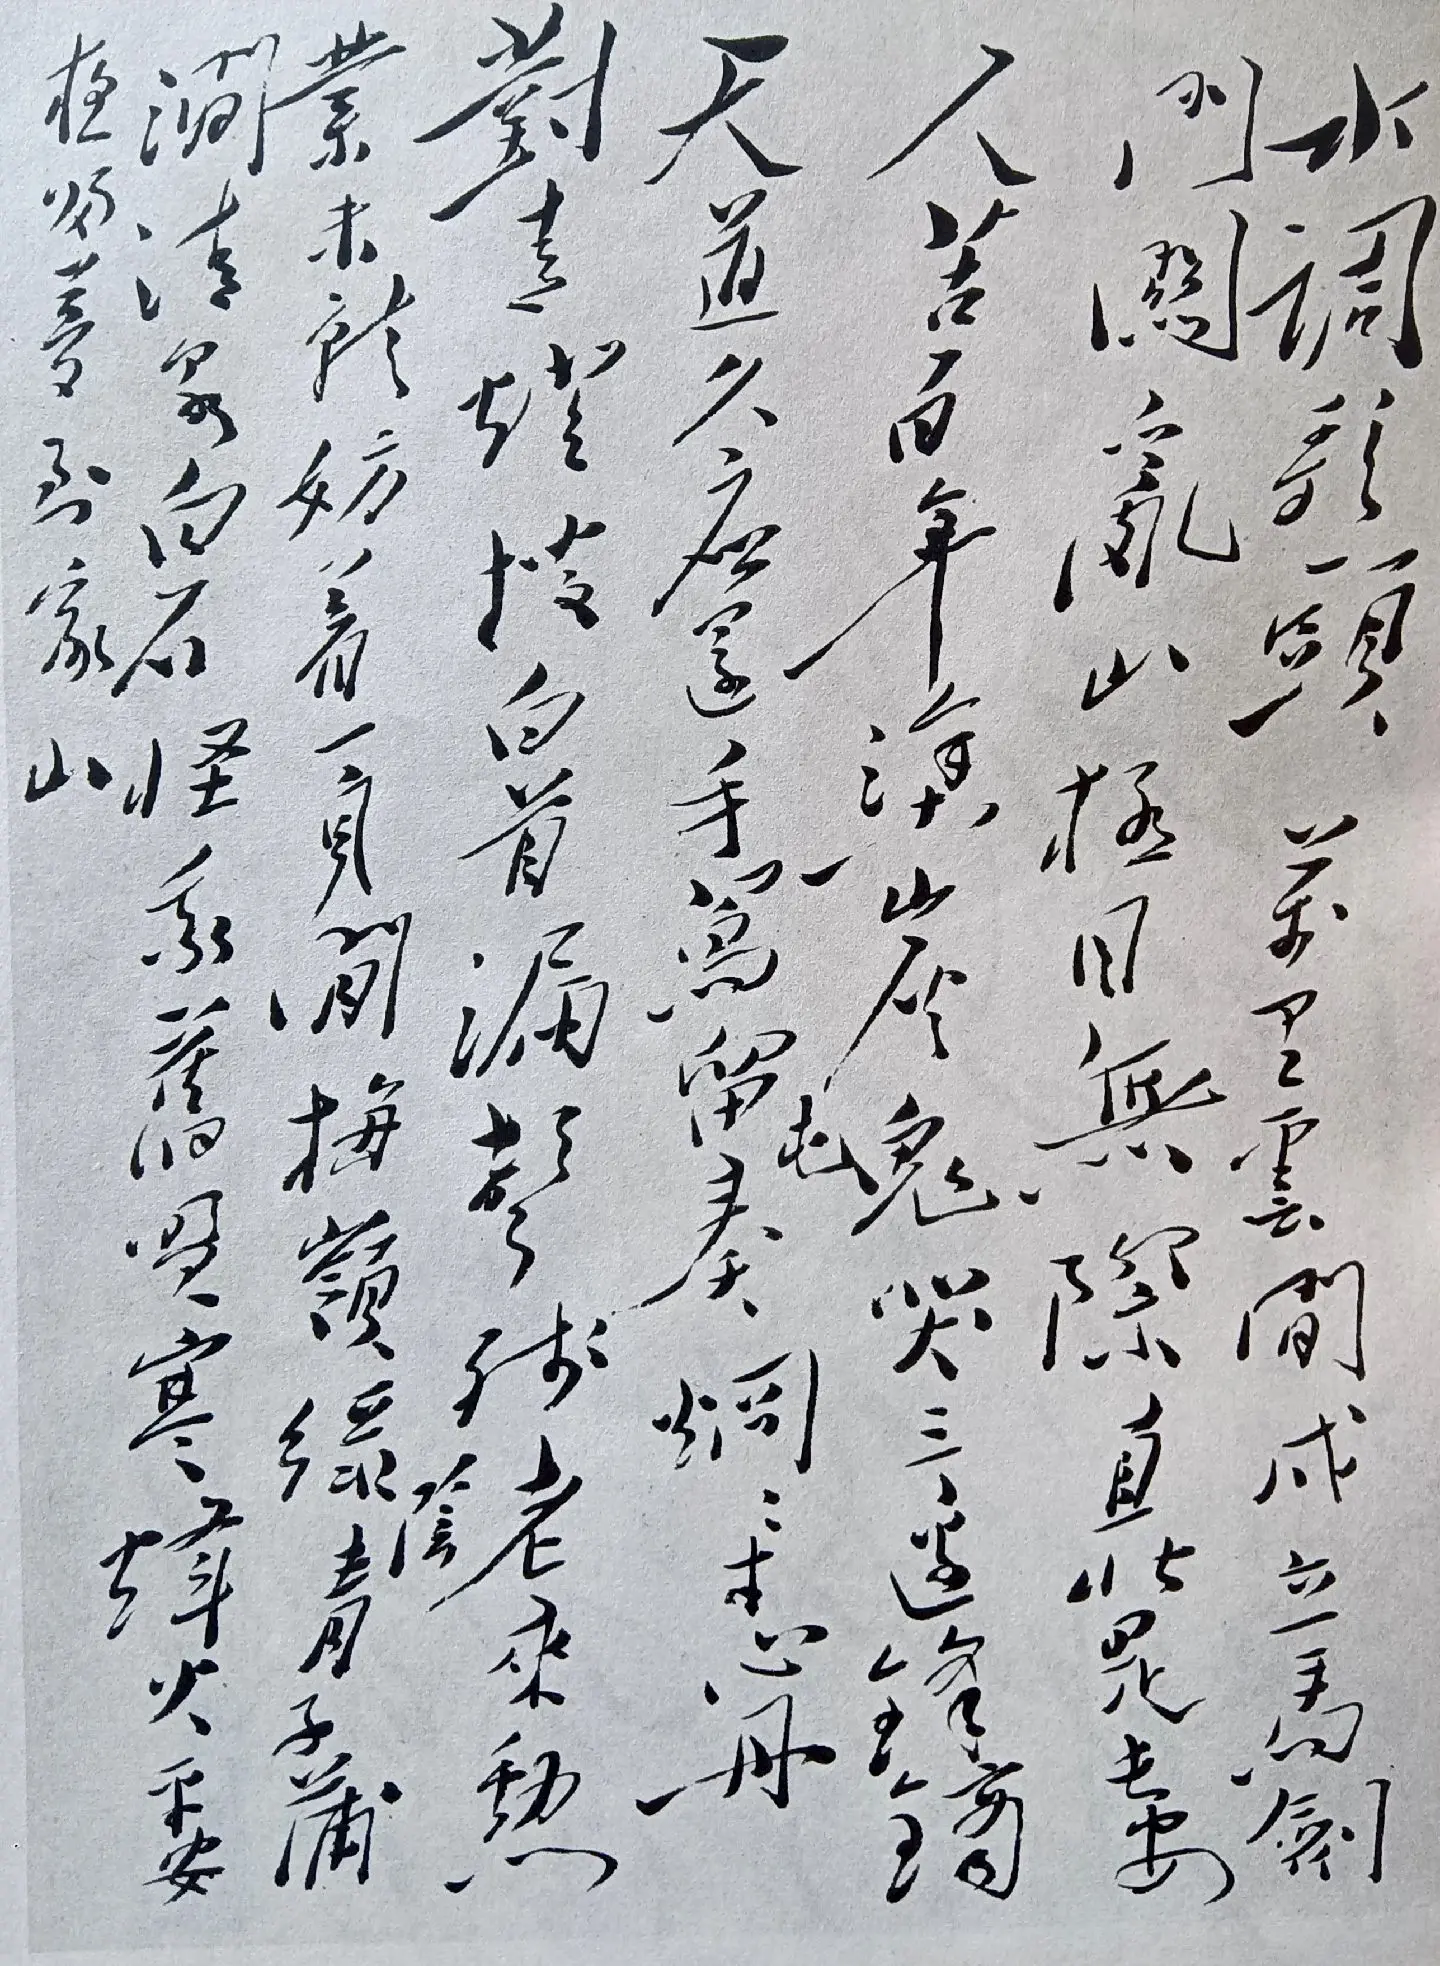 水調歌頭 萬里雲間戍立馬劍
門關亂山極目無際直北是長安
人苦百年塗炭鬼哭三邊鋒鏑
天道久應還手寫留屯奏炯々寸心丹
對青燈搔白首漏聲殘老來勳
業未就妨着一身閒梅嶺綠陰青子蒲
澗清泉白石怪我舊盟寒烽火平安
夜歸夢到家山